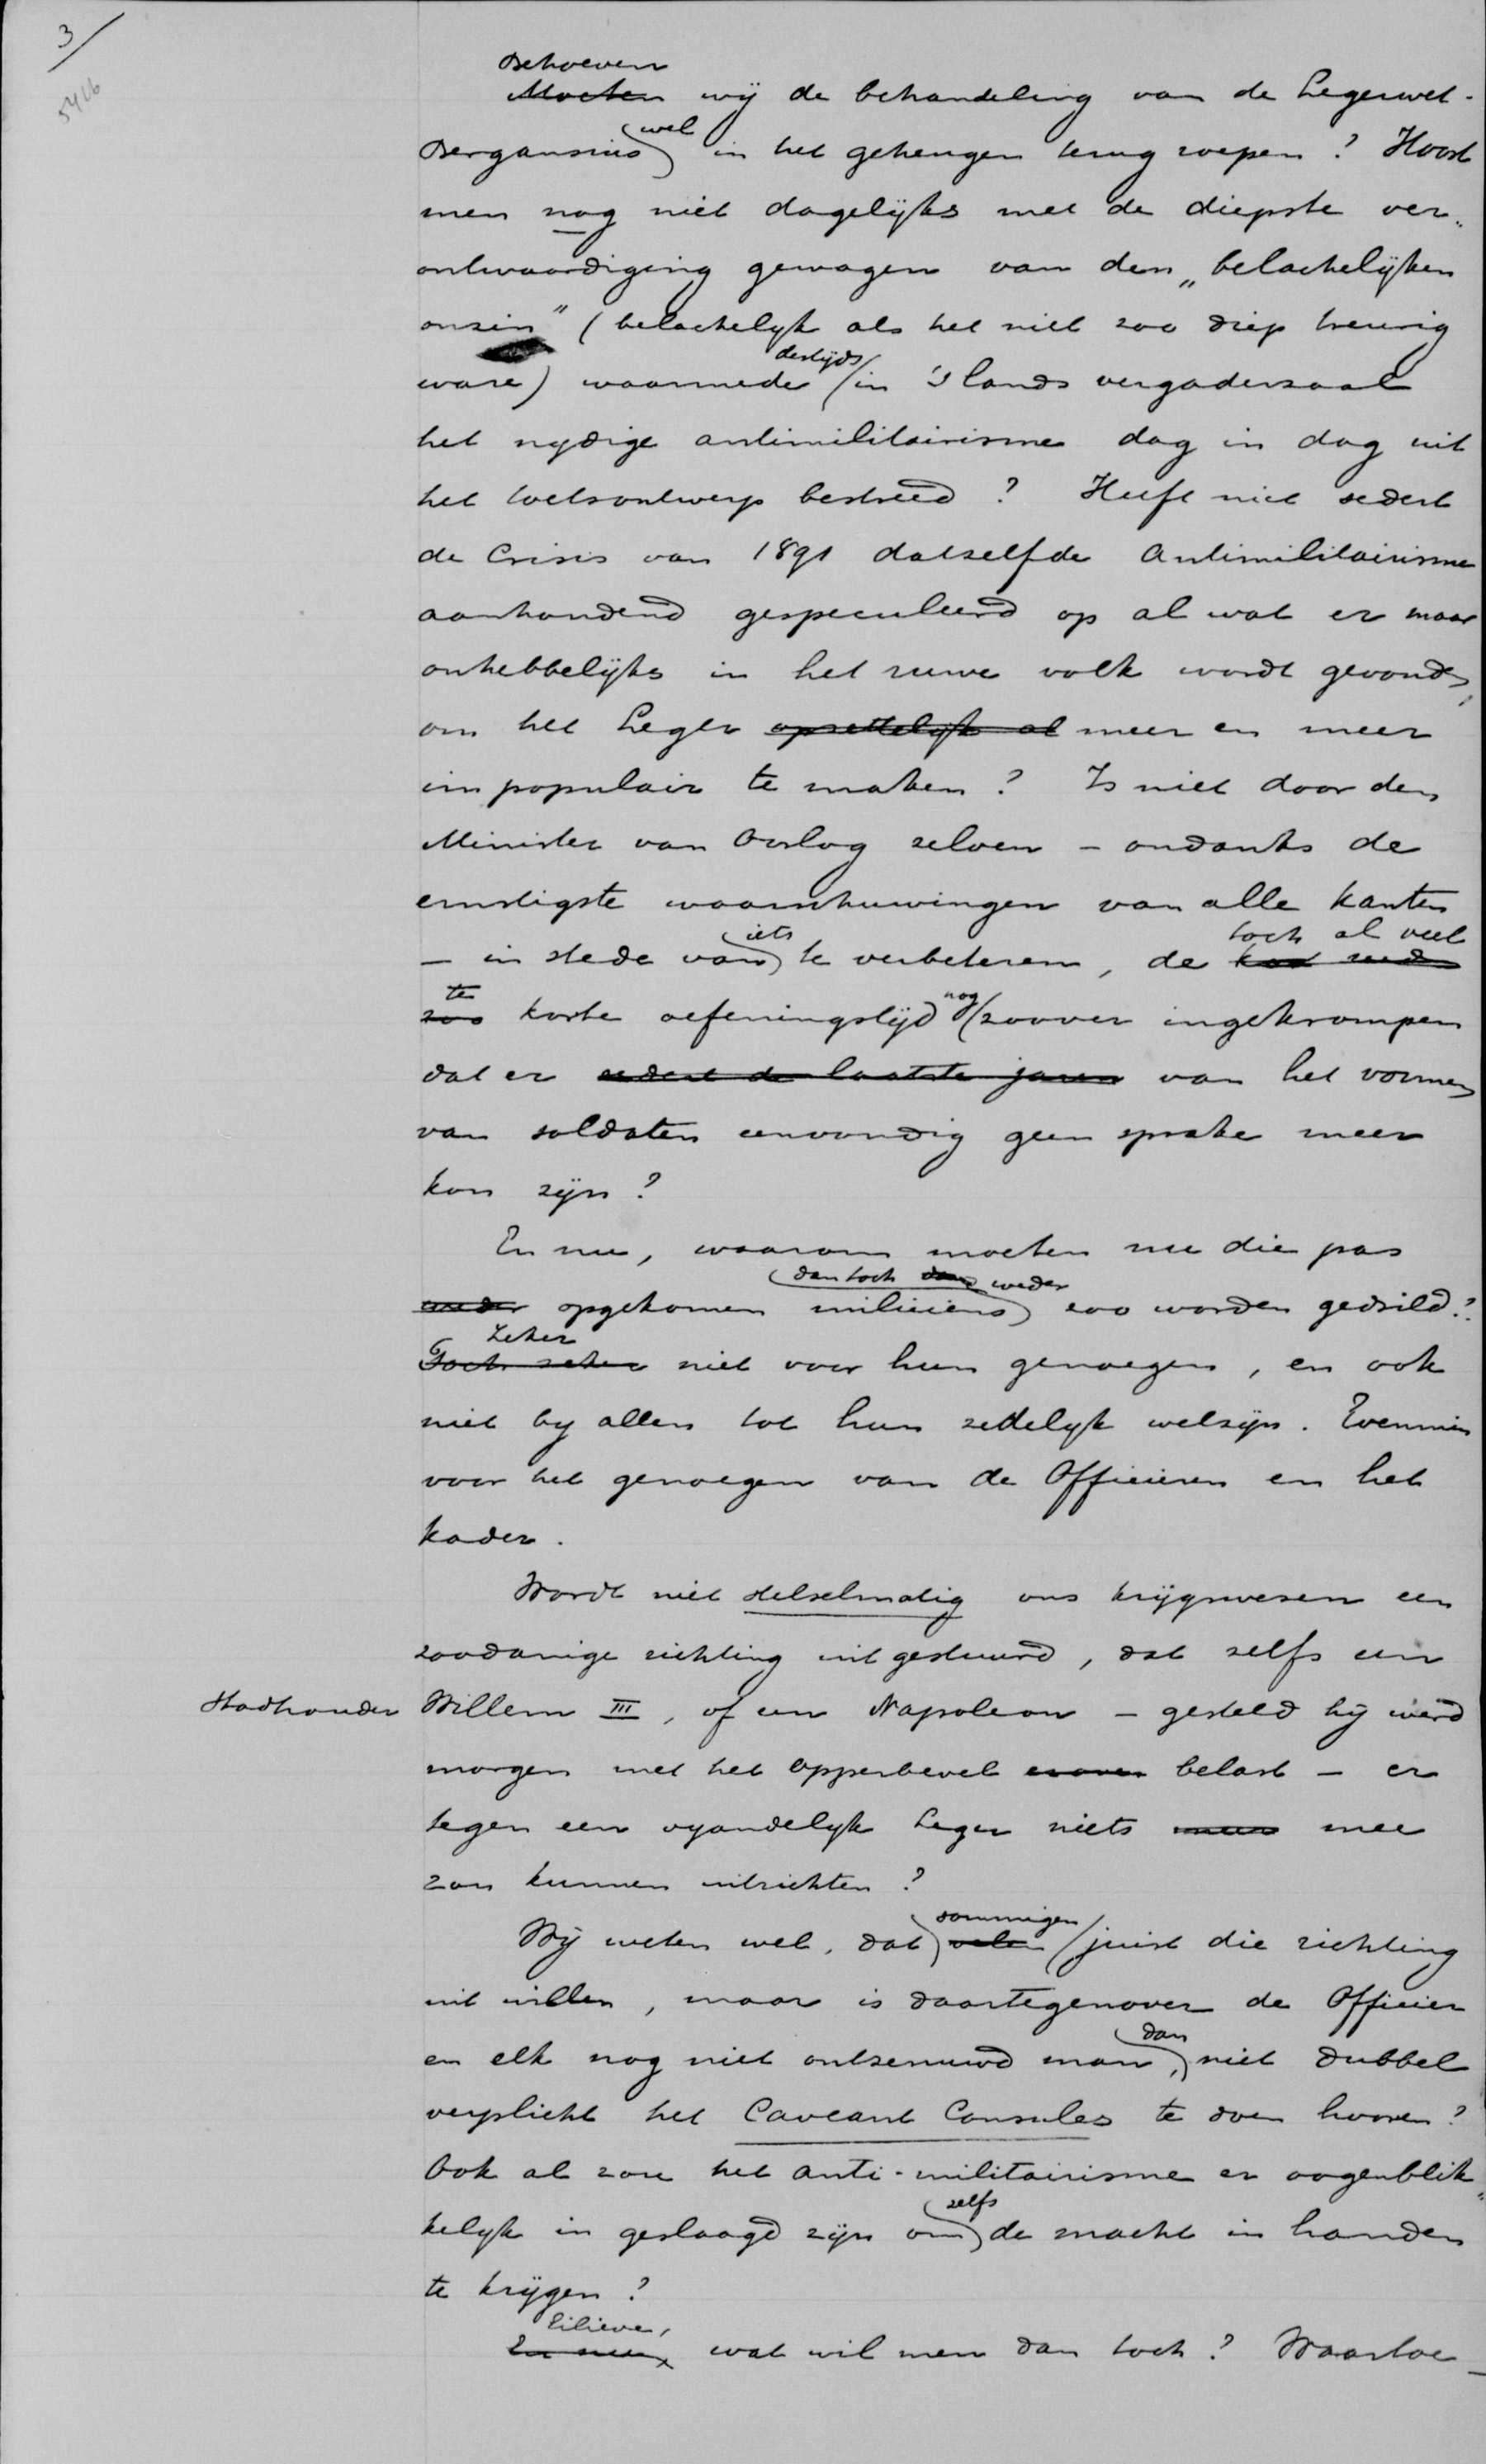 3/
5426
Behoeven
Moeten wij de behandeling van de Legerwet-
Bergansius wel in het geheugen terug roepen? Hoort
men nog niet dagelijks met de diepste ver„
ontwaardiging gewagen van den „belachelijken
onzin" (belachelijk als het niet zoo diep treurig
ware) waarmede destijds in 's lands vergaderzaal
het nydige antimilitairisme dag in dag uit
het wetsontwerp bestreed? Heeft niet sedert
de Crisis van 1891 datzelfde Antimilitairisme
aanhoudend gespeculeerd op al wat er maar
onhebbelijks in het ruwe volk wordt gevonden,
om het Leger opzettelijk al meer en meer
impopulair te maken? Is niet door den
Minister van Oorlog zelven – ondanks de
ernstigste waarschuwingen van alle kanten
– in stede van iets te verbeteren, de toch al veel
zoo te korte oefeningstijd nog zoover ingekrompen
dat er sedert de laatste jaren van het vormen
van soldaten eenvoudig geen sprake meer
kon zijn?
En nu, waarom moeten nu die pas
weder opgekomen miliciens dan toch dan weder zoo worden gedrild?
Toch zeker Zeker niet voor hun genoegen, en ook
niet by allen tot hun zedelyk welzijn. Evenmin
voor het genoegen van de Officieren en het
kader.
Wordt niet stelselmatig ons krijgswezen een
zoodanige richting uit gestuurd, dat zelfs een
Stadhouder Willem III, of een Napoleon – gesteld hij werd
morgen met het Opperbevel erover belast – er
tegen een vyandelyk Leger niets meer mee
zou kunnen uitrichten?
Wij weten wel, dat velen sommigen juist die richting
uit willen, maar is daartegenover de Officier
en elk nog niet ontzenuwd man, dan niet dubbel
verplicht het Caveant Consules te doen hooren?
Ook al zou het anti-militairisme er oogenblik„
kelyk in geslaagd zijn om zelfs de macht in handen
te krijgen?
Eilieve,
En nu, wat wil men dan toch? Waartoe –